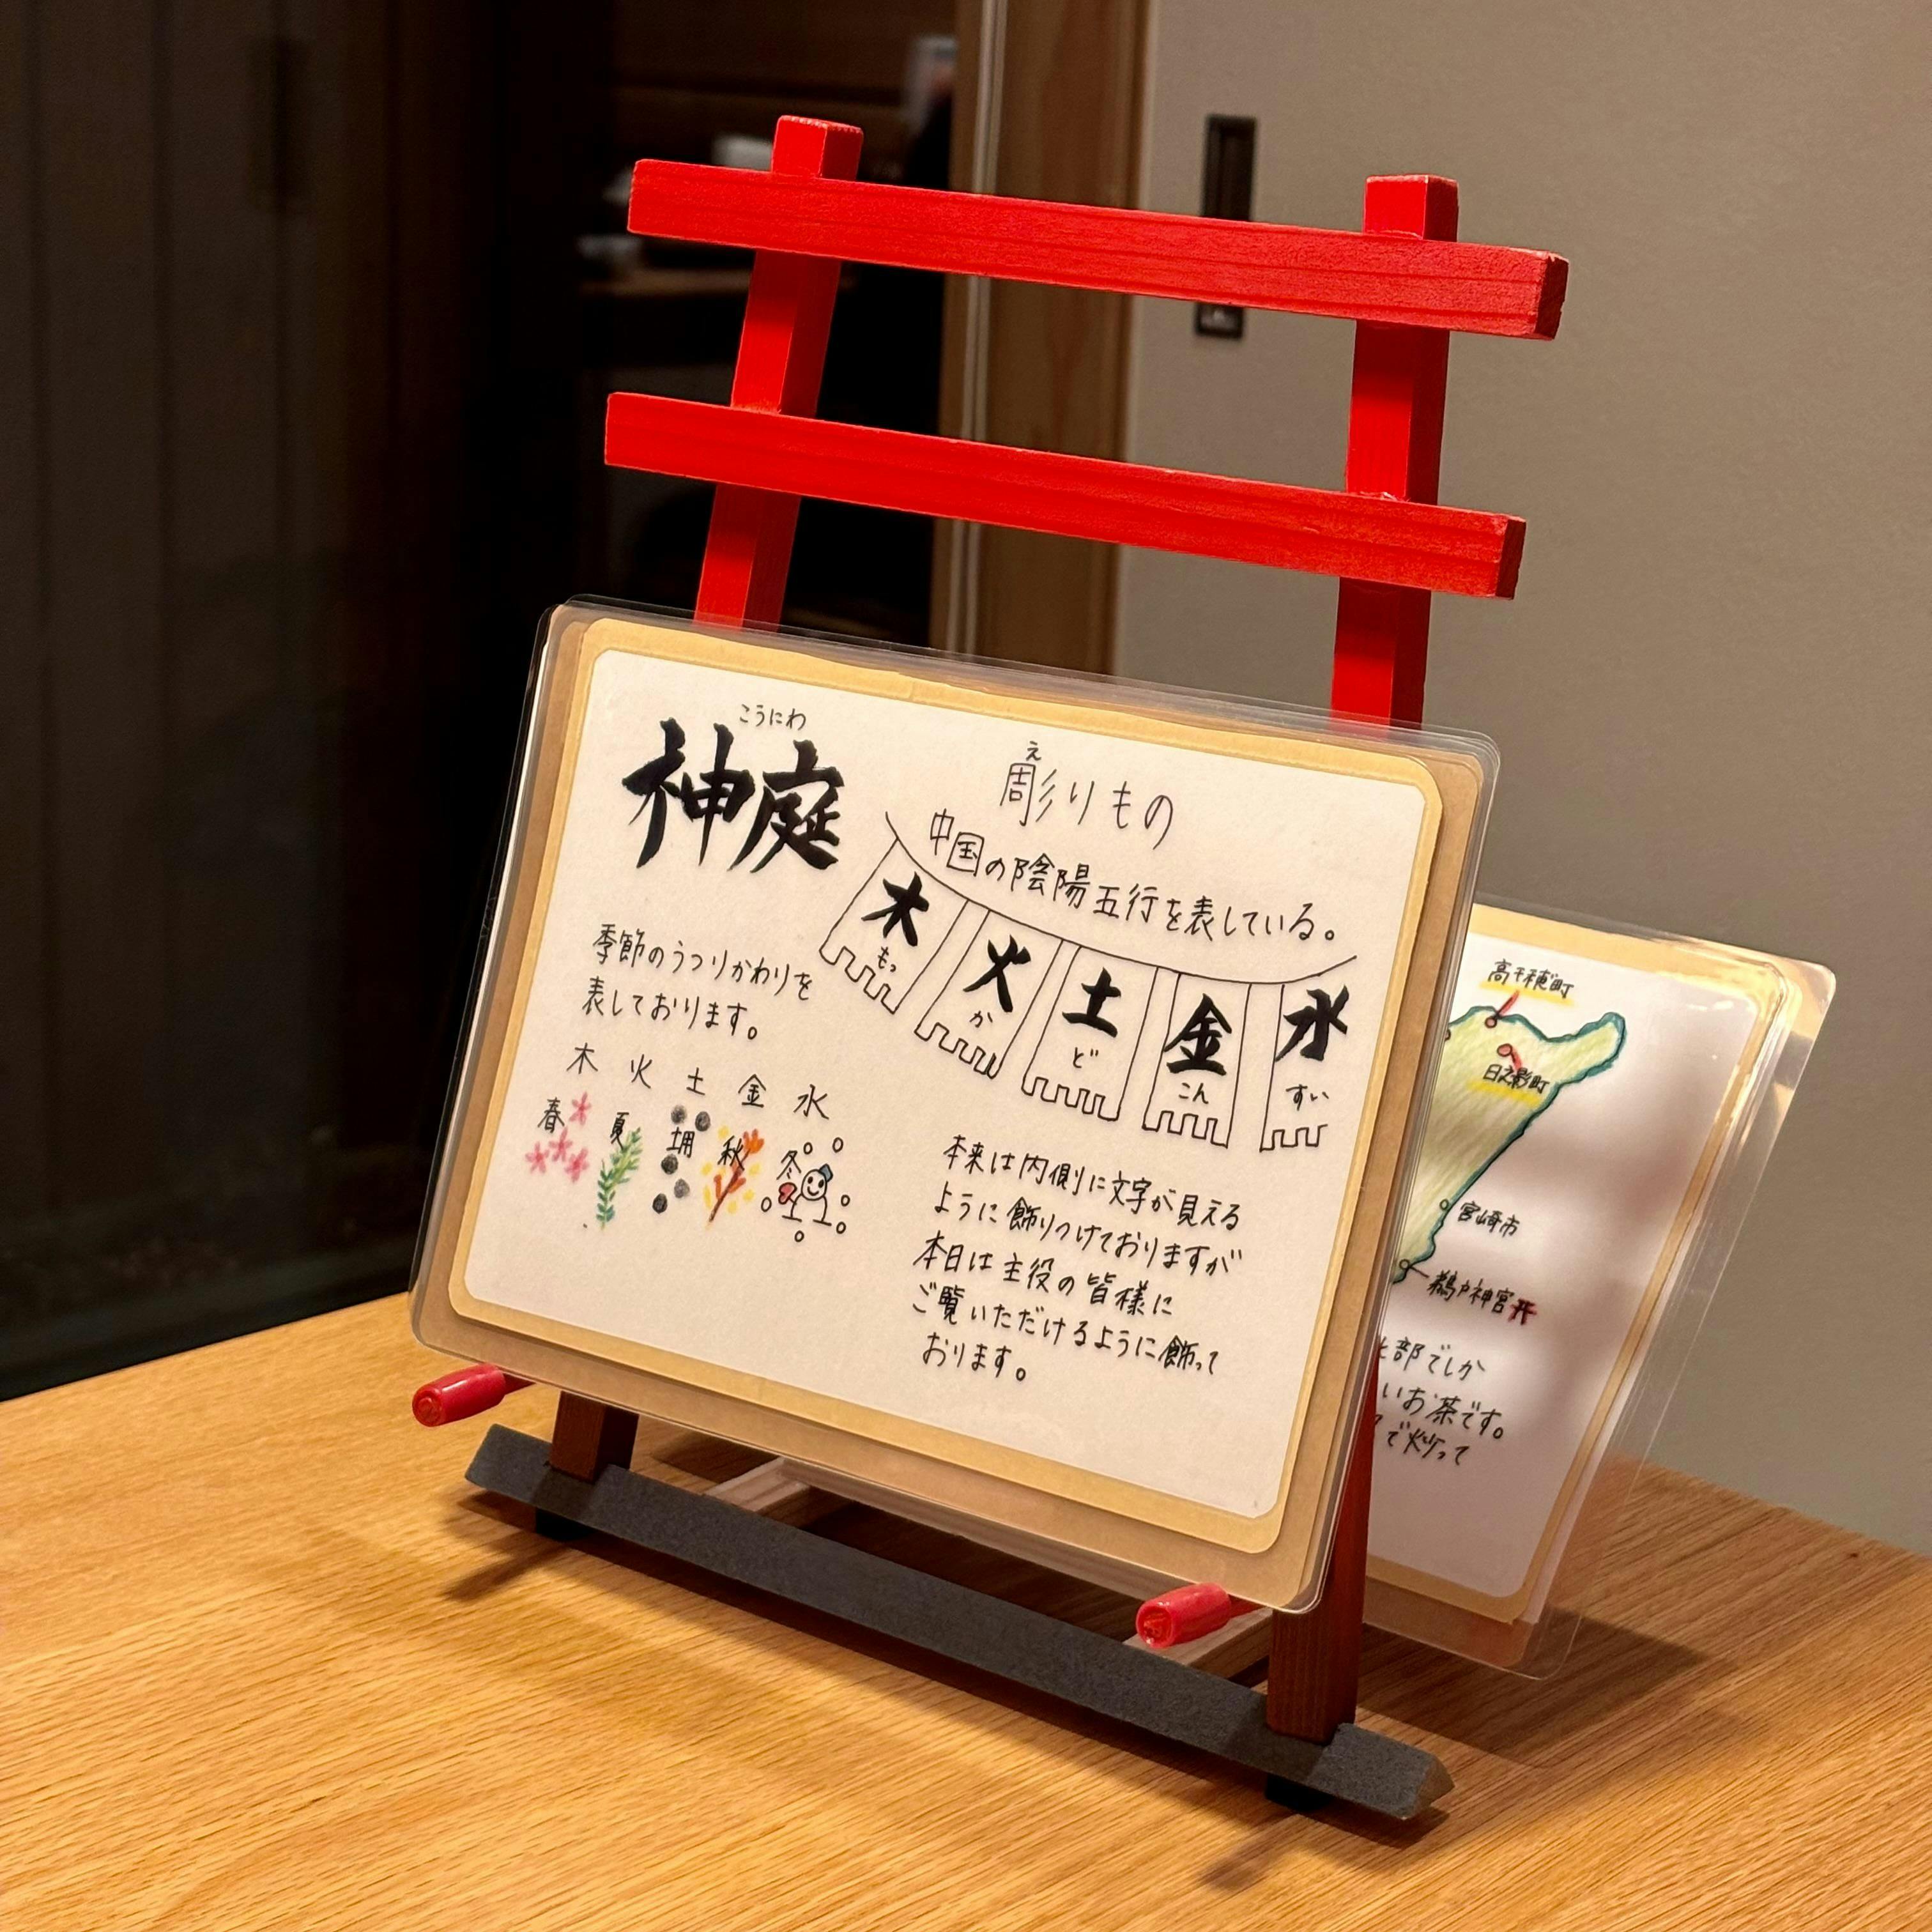 こうにわ
神庭
季節のうつりかわりを
表しております。
木 火 土 金 水
春 夏 秋 冬
え
彫りもの
中国の陰陽五行を表している。
木 火 土 金 水
もっ か ど こん すい
本来は内側に文字が見える
ように飾りつけておりますが
本日は主役の皆様に
ご覧いただけるように飾って
おります。
高千穂町
日之影町
宮崎市
鵜戸神宮
部でしか
いお茶です。
で炒って